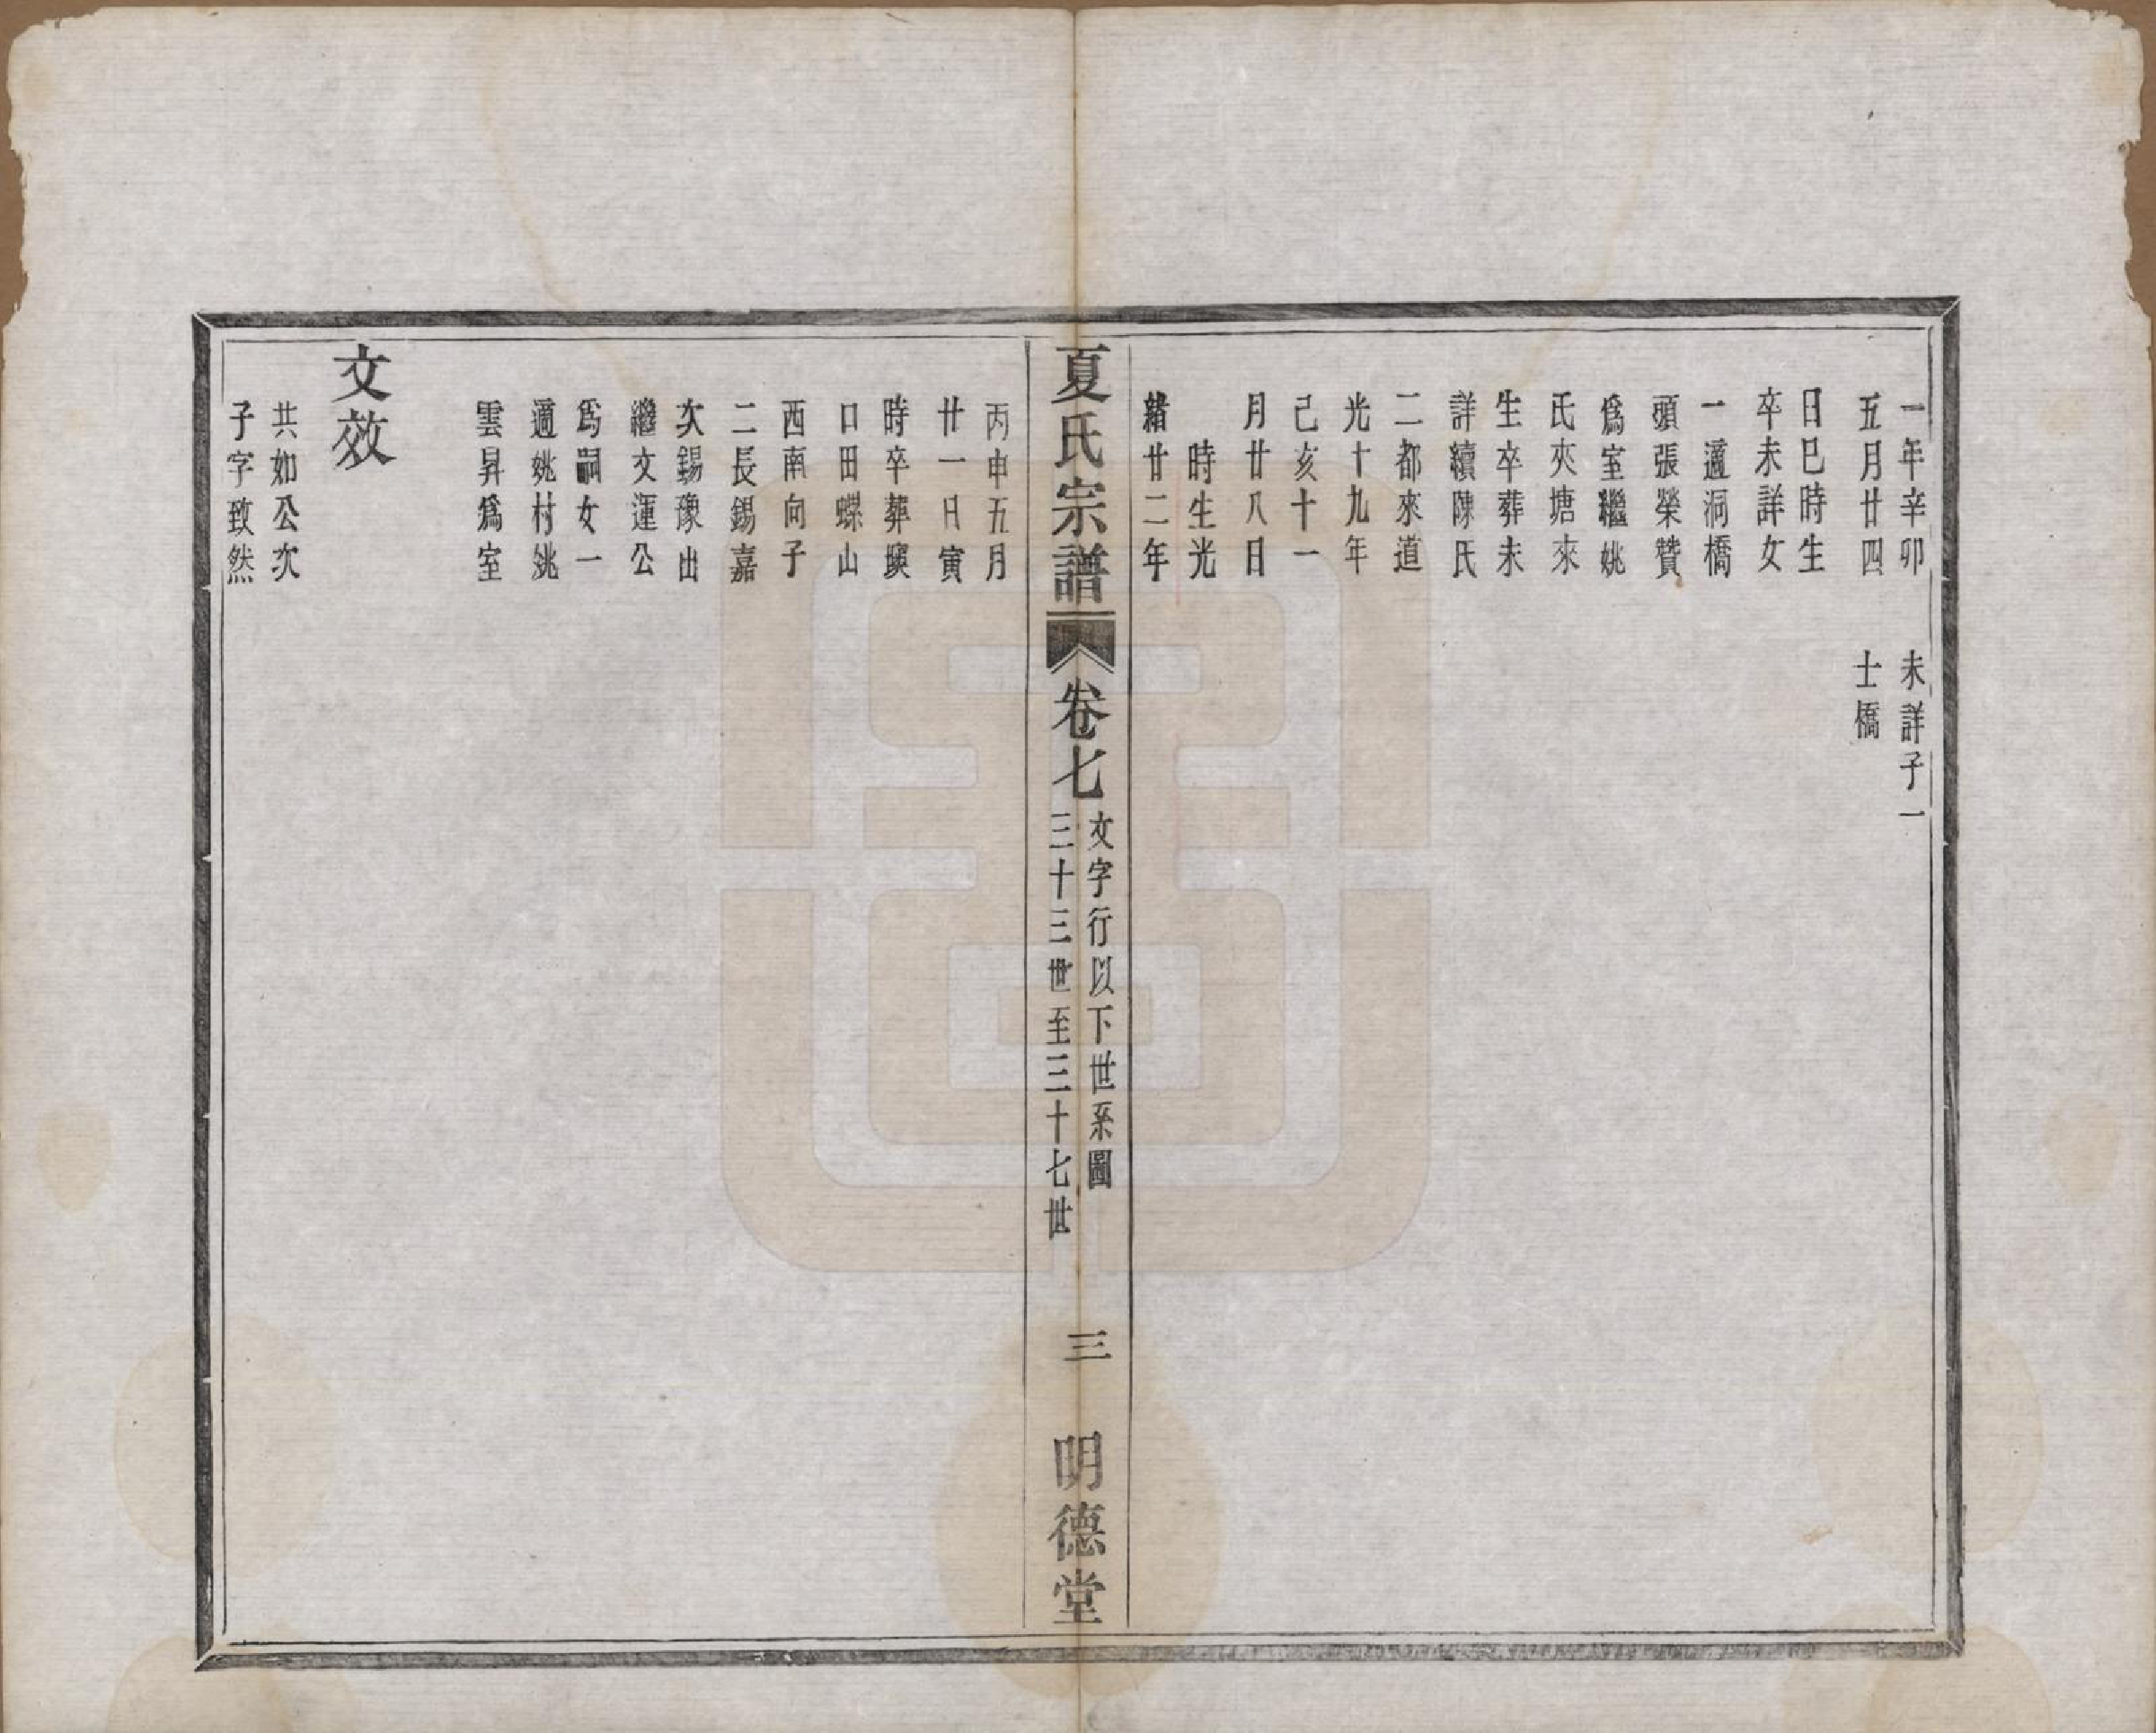 一年辛卯
五月廿四
日巳時生
卒未詳女
一適洞橋
頭張榮贊
爲室繼姚
氏夾塘來
生卒葬未
詳續陳氏
二都來道
光十九年
己亥十一
月廿八日
時生光
緒廿二年
未詳子一
士橋
夏氏宗譜
卷七
文字行以下世系圖
三十三世至三十七世
三
明德堂
丙申五月
廿一日寅
時卒葬
口田螺山
西南向子
二長錫嘉
次錫豫出
繼文運公
爲嗣女一
適姚村姚
雲昇爲室
文效
共如公次
子字致然